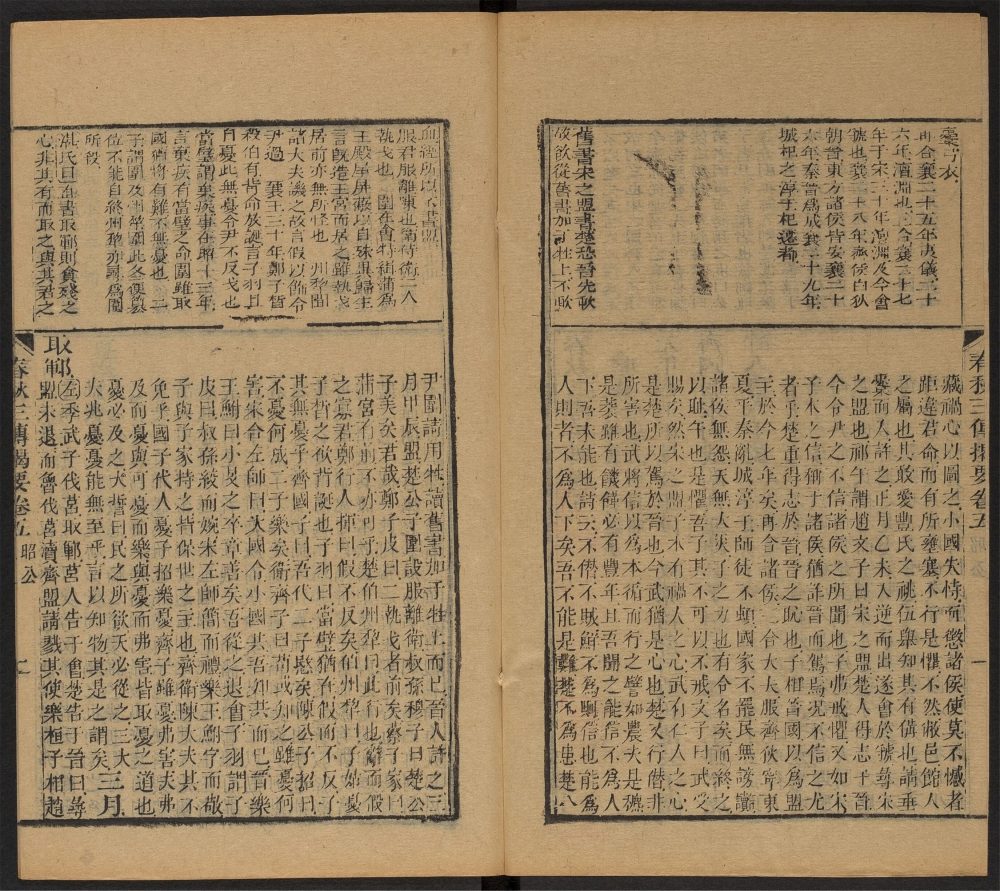 櫜弓衣
再合襄二十五年夷儀二十
六年澶淵也三合襄二十七
年于宋三十年澶淵及今會
虢也襄二十八年燕侯白狄
朝晉東方諸侯皆安襄二十
六年秦晉爲成襄二十九年
城杞之淳于杞遷都
舊書宋之盟書楚恐晉先歃
故欲從舊書加于牲上不歃
春秋三傳揭要卷五 昭公 一
藏禍心以圖之小國失恃而懲諸侯使莫不憾者
距違君命而有所壅塞不行是懼不然敝邑館人
之屬也其敢愛豐氏之祧伍舉知其有備也請垂
櫜而入許之正月乙未入逆而出遂會於虢尋宋
之盟也祁午謂趙文子曰宋之盟楚人得志于晉
今令尹之不信諸侯之所聞也子弗戒懼又如宋
子木之信稱于諸侯猶詐晉而駕焉况不信之尤
者乎楚重得志於晉晉之恥也子相晉國以爲盟
主於今七年矣再合諸侯三合大夫服齊狄寧東
夏平秦亂城淳于師徒不頓國家不罷民無謗讟
諸侯無怨天無大災子之力也有令名矣而終之
以耻午也是懼吾子其不可以不戒文子曰武受
賜矣然宋之盟子木有禍人之心武有仁人之心
是楚所以駕於晉也今武猶是心也楚又行僭非
所害也武將信以爲本循而行之譬如農夫是穮
是蓘雖有饑饉必有豐年且吾聞之能信不爲人
下吾未能也詩云不僭不賊鮮不爲則信也能爲
人則者不爲人下矣吾不能是難楚不爲患楚
血經所以不書盟
服君服離陳也衛侍衛二人
執戈也 圍在會特緝蒲爲
王殿屋屏蔽以自殊異歸生
言旣造王宮而居之雖執戈
居前亦無所怪也 州犂聞
諸大夫譏之故言假以飾令
尹過 襄三十年鄭子晳
殺伯有背命放誕言子羽且
自憂此無憂令尹不反戈也
當璧謂棄疾事在昭十三年
言棄疾有當璧之命圍雖取
國猶將有難不無憂也 二
子謂圍及州犂圍此冬便篡
位不能自終州犂亦尋爲圍
所殺
湛氏曰直書取鄆則貪殘之
心非其有而取之與其君之
尹圍請用牲讀舊書加于牲上而已晉人許之三
月甲辰盟楚公子圍設服離衛叔孫穆子曰楚公
子美矣君哉鄭子皮曰二執戈者前矣蔡子家曰
蒲宮有前不亦可乎楚伯州犂曰此行也辭而假
之寡君鄭行人揮曰假不反矣伯州犂曰子姑憂
子晳之欲背誕也子羽曰當璧猶在假而不反子
其無憂乎齊國子曰吾代二子愍矣陳公子招曰
不憂何成二子樂矣衛齊子曰苟或知之雖憂何
害宋合左師曰大國令小國共吾知共而已晉樂
王鮒曰小旻之卒章善矣吾從之退會子羽謂子
皮曰叔孫絞而婉宋左師簡而禮樂王鮒字而敬
子與子家持之皆保世之主也齊衛陳大夫其不
免乎國子代人憂子招樂憂齊子雖憂弗害夫弗
及而憂與可憂而樂與憂而弗害皆取憂之道也
憂必及之大誓曰民之所欲天必從之三大
夫兆憂憂能無至乎言以知物其是之謂矣 三月
取鄆 左季武子伐莒取鄆莒人告于會楚告于晉曰尋
盟未退而魯伐莒瀆齊盟請戮其使樂桓子相趙
春秋三傳揭要卷五 昭公